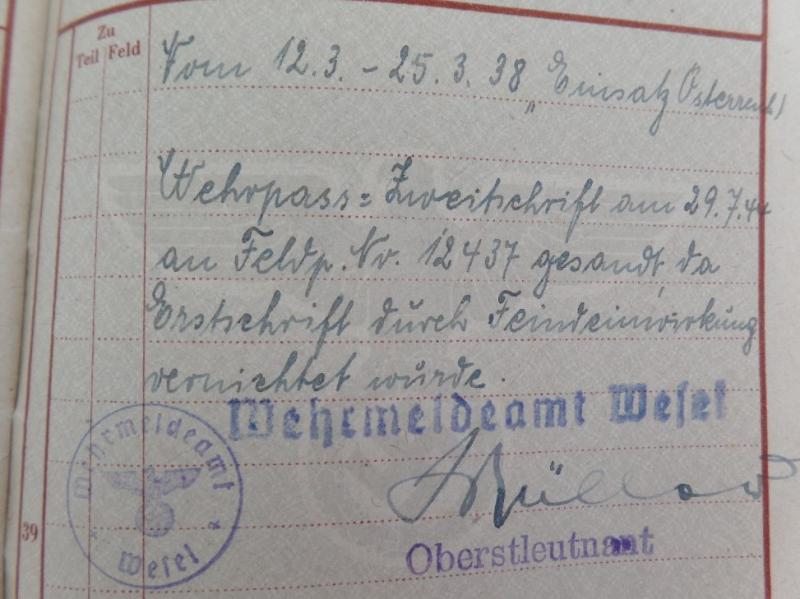 Zu
Teil Feld
Vom 12.3. - 25.3.38 "Einsatz Österreich"
Wehrpass = Zweitschrift am 29.7.44
an Feldp. Nr. 12437 gesandt, da
Erstschrift durch Feindeinwirkung
vernichtet wurde.
Wehrmeldeamt Wesel
Oberstleutnant
Wehrmeldeamt
* Wesel *
39